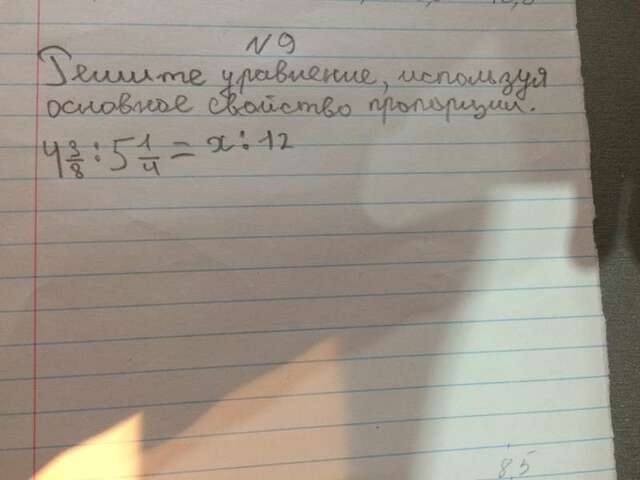 N9
Решите уравнение, используя
основное свойство пропорции.
4 3/8 : 5 1/4 = x : 12
85